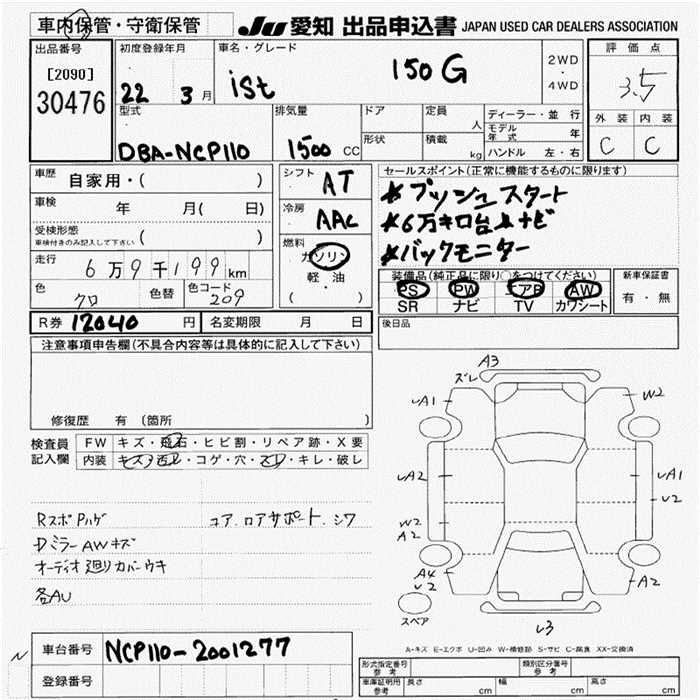 車内保管・守衛保管
JU 愛知 出品申込書 JAPAN USED CAR DEALERS ASSOCIATION
出品番号
[2090]
30476
初度登録年月
22 3 月
車名・グレード
iSt 150G
2WD
・
4WD
評価点
3.5
外装 内装
C C
型式
DBA-NCP110
排気量
1500 CC
ドア
形状
定員
人
積載
kg
ディーラー・並行
モデル年式 年
ハンドル 左・右
車歴
自家用・( )
車検 年 月( 日)
受検形態
車検付きのみ記入して下さい ( )
走行
6万9千199km
色
クロ
色替
色コード
209
シフト
AT
冷房
AAC
燃料
ガソリン
軽・油
( )
セールスポイント(正常に機能するものに限ります)
*プッシュスタート
*6万キロ台 ナビ
*バックモニター
装備品(純正品に限り○をつけてください)
PS PW エアB AW
SR ナビ TV カワシート
新車保証書
有・無
R券 12040 円
名変期限 月 日
後日品
注意事項申告欄(不具合内容等は具体的に記入して下さい)
修復歴 有 (箇所 )
検査員
記入欄
FW キズ・飛石・ヒビ割・リペア跡・X要
内装 キズ・汚レ・コゲ・穴・スレ・キレ・破レ
RスポPハゲ
コア.ロアサポート.シワ
DミラーAWキズ
オーディオ廻りカバーウキ
各AU
A3
ズレ
A1
W2
A2
A1
U2
W2
A2
A4
U2
A2
スペア
3
A-キズ E-エクボ U-凹み W-補修跡 S-サビ C-腐食 XX-交換済
N
車台番号
NCP110-2001277
登録番号
形式指定番号
参考
類別区分番号
参考
車庫証明用
参考
長さ cm
幅 cm
高さ cm